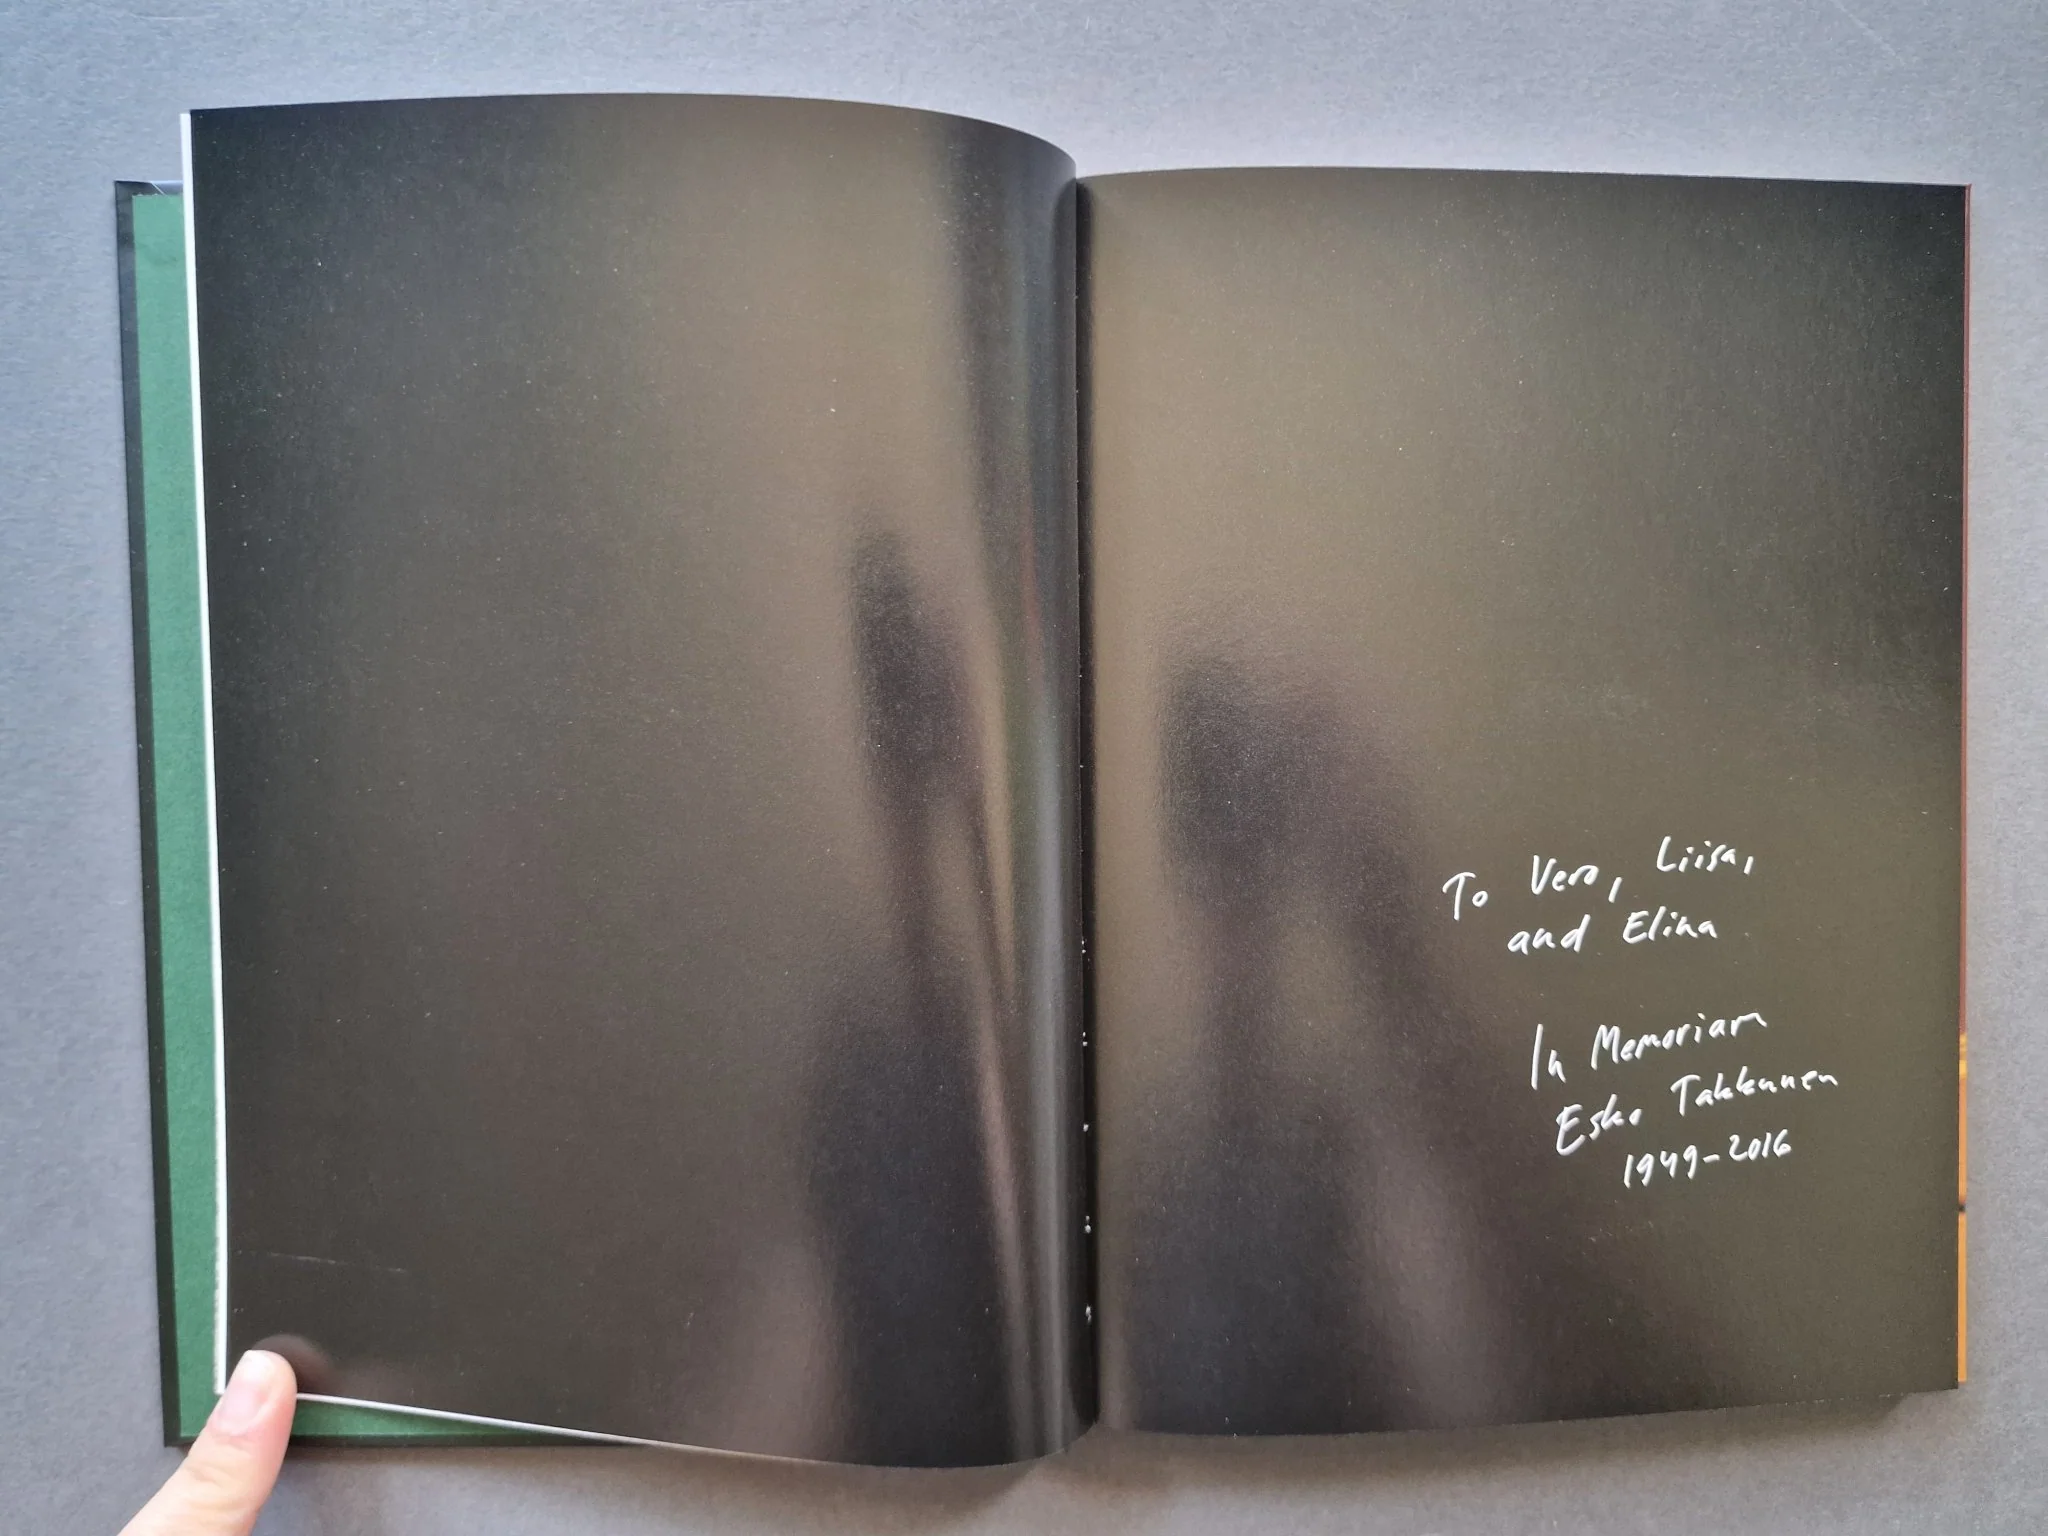 To Vera, Liisa,
and Elina
In Memoriam
Esko Takkunen
1949-2016